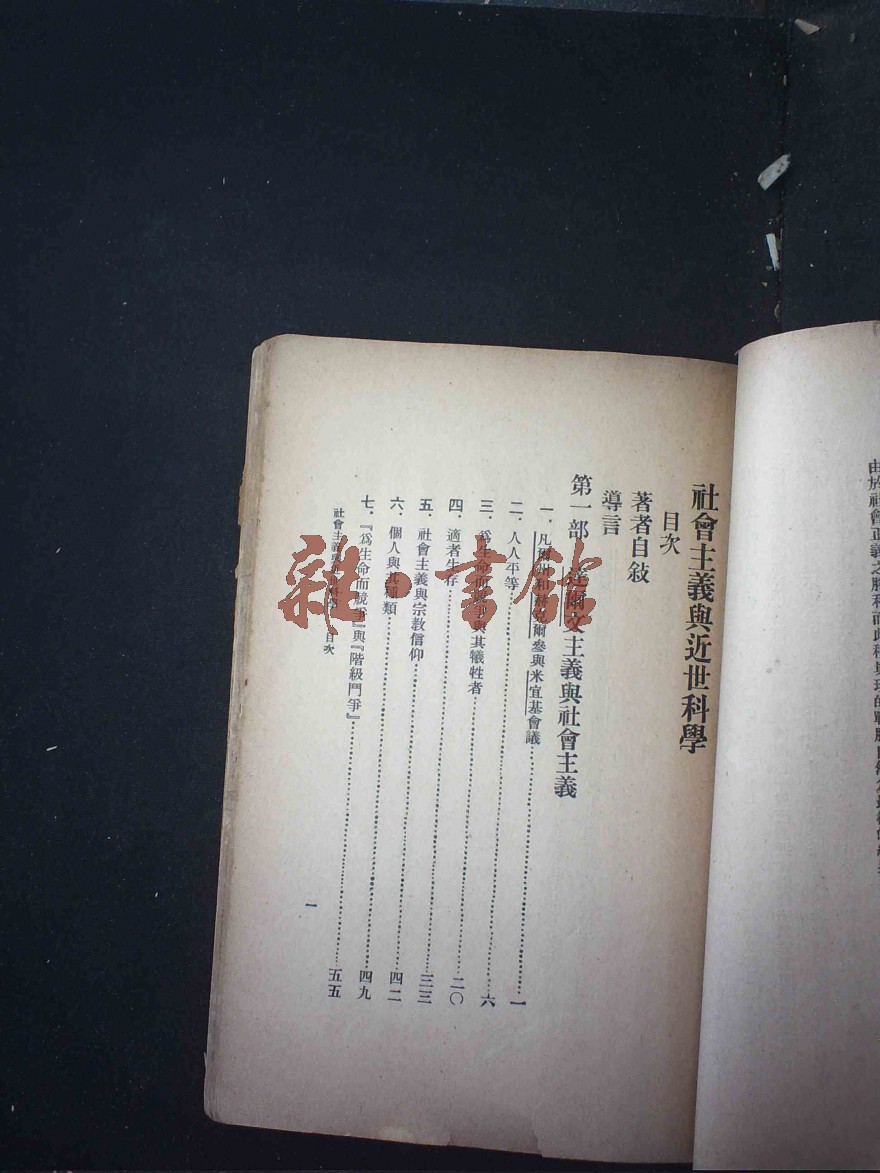 社會主義與近世科學
目次
著者自敍
導言
第一部 達爾文主義與社會主義
一．凡爾和赫克爾參與米宜基會議……一
二．人人平等……六
三．爲生命而競爭與其犧牲者……二〇
四．適者生存……三三
五．社會主義與宗教信仰……四二
六．個人與其種類……四九
七．『爲生命而競爭』與『階級鬥爭』……五五
社會主義與近世科學 目次
一
雜·書館